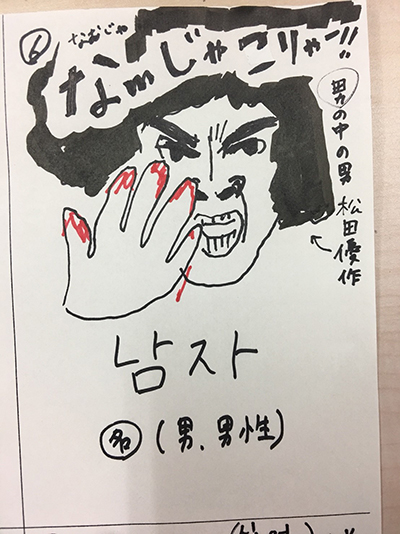 ⑥
なむじゃ
なmじゃコリャー!!
男の中の男
松田優作
남자
名 (男、男性)